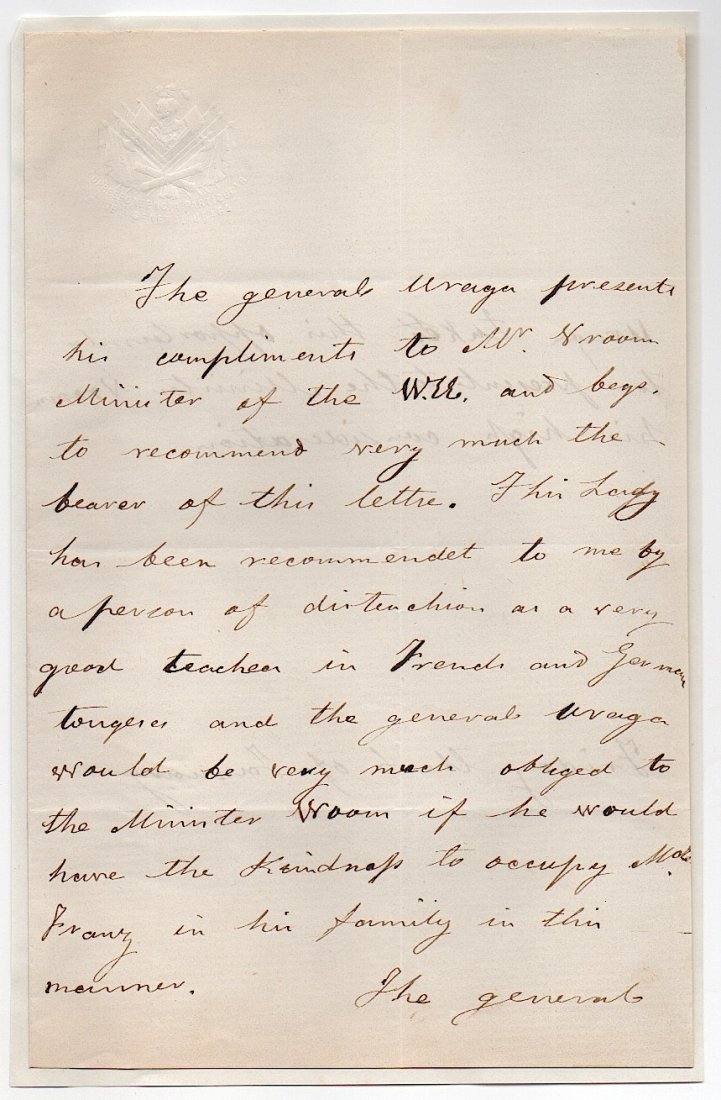 The general Uraga presents
his compliments to Mr. Vroom
Minister of the W.U. and begs.
to recommend very much the
bearer of this lettre. This Lady
has been recommendet to me by
a person of disteuchion as a very
good teacher in Frends and German
tongeses and the general Uraga
would be very much obliged to
the Minister Wroom if he would
have the Kindness to occupy
Franz in his family in this
manner. The general